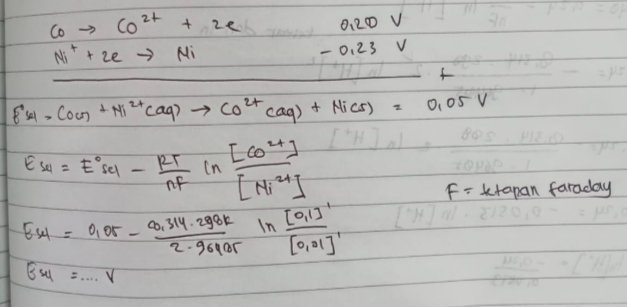 Co → Co²⁺ + 2e 0,20 V
Ni⁺ + 2e → Ni - 0,23 V
+
E°sel = Co(s) + Ni²⁺(aq) → Co²⁺(aq) + Ni(s) = 0,05 V
E sel = E°sel - RT/nF ln [Co²⁺]/[Ni²⁺]
F = tetapan faraday
E sel = 0,05 - 8,314.298K/2.96485 ln [0,1]¹/[0,01]¹
E sel = .... V